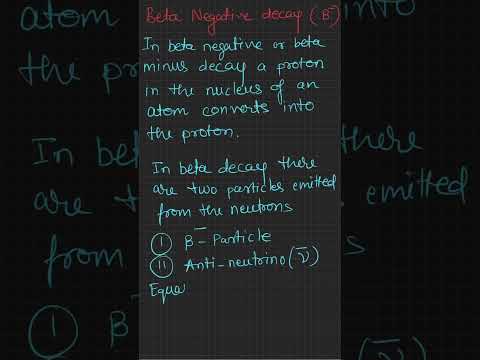 Beta Negative decay (β⁻)
In beta negative or beta
minus decay a proton
in the nucleus of an
atom converts into
the proton.
In beta decay there
are two particles emitted
from the neutrons
(I) β⁻- Particle
(II) Anti-neutrino (ν̅)
Equa